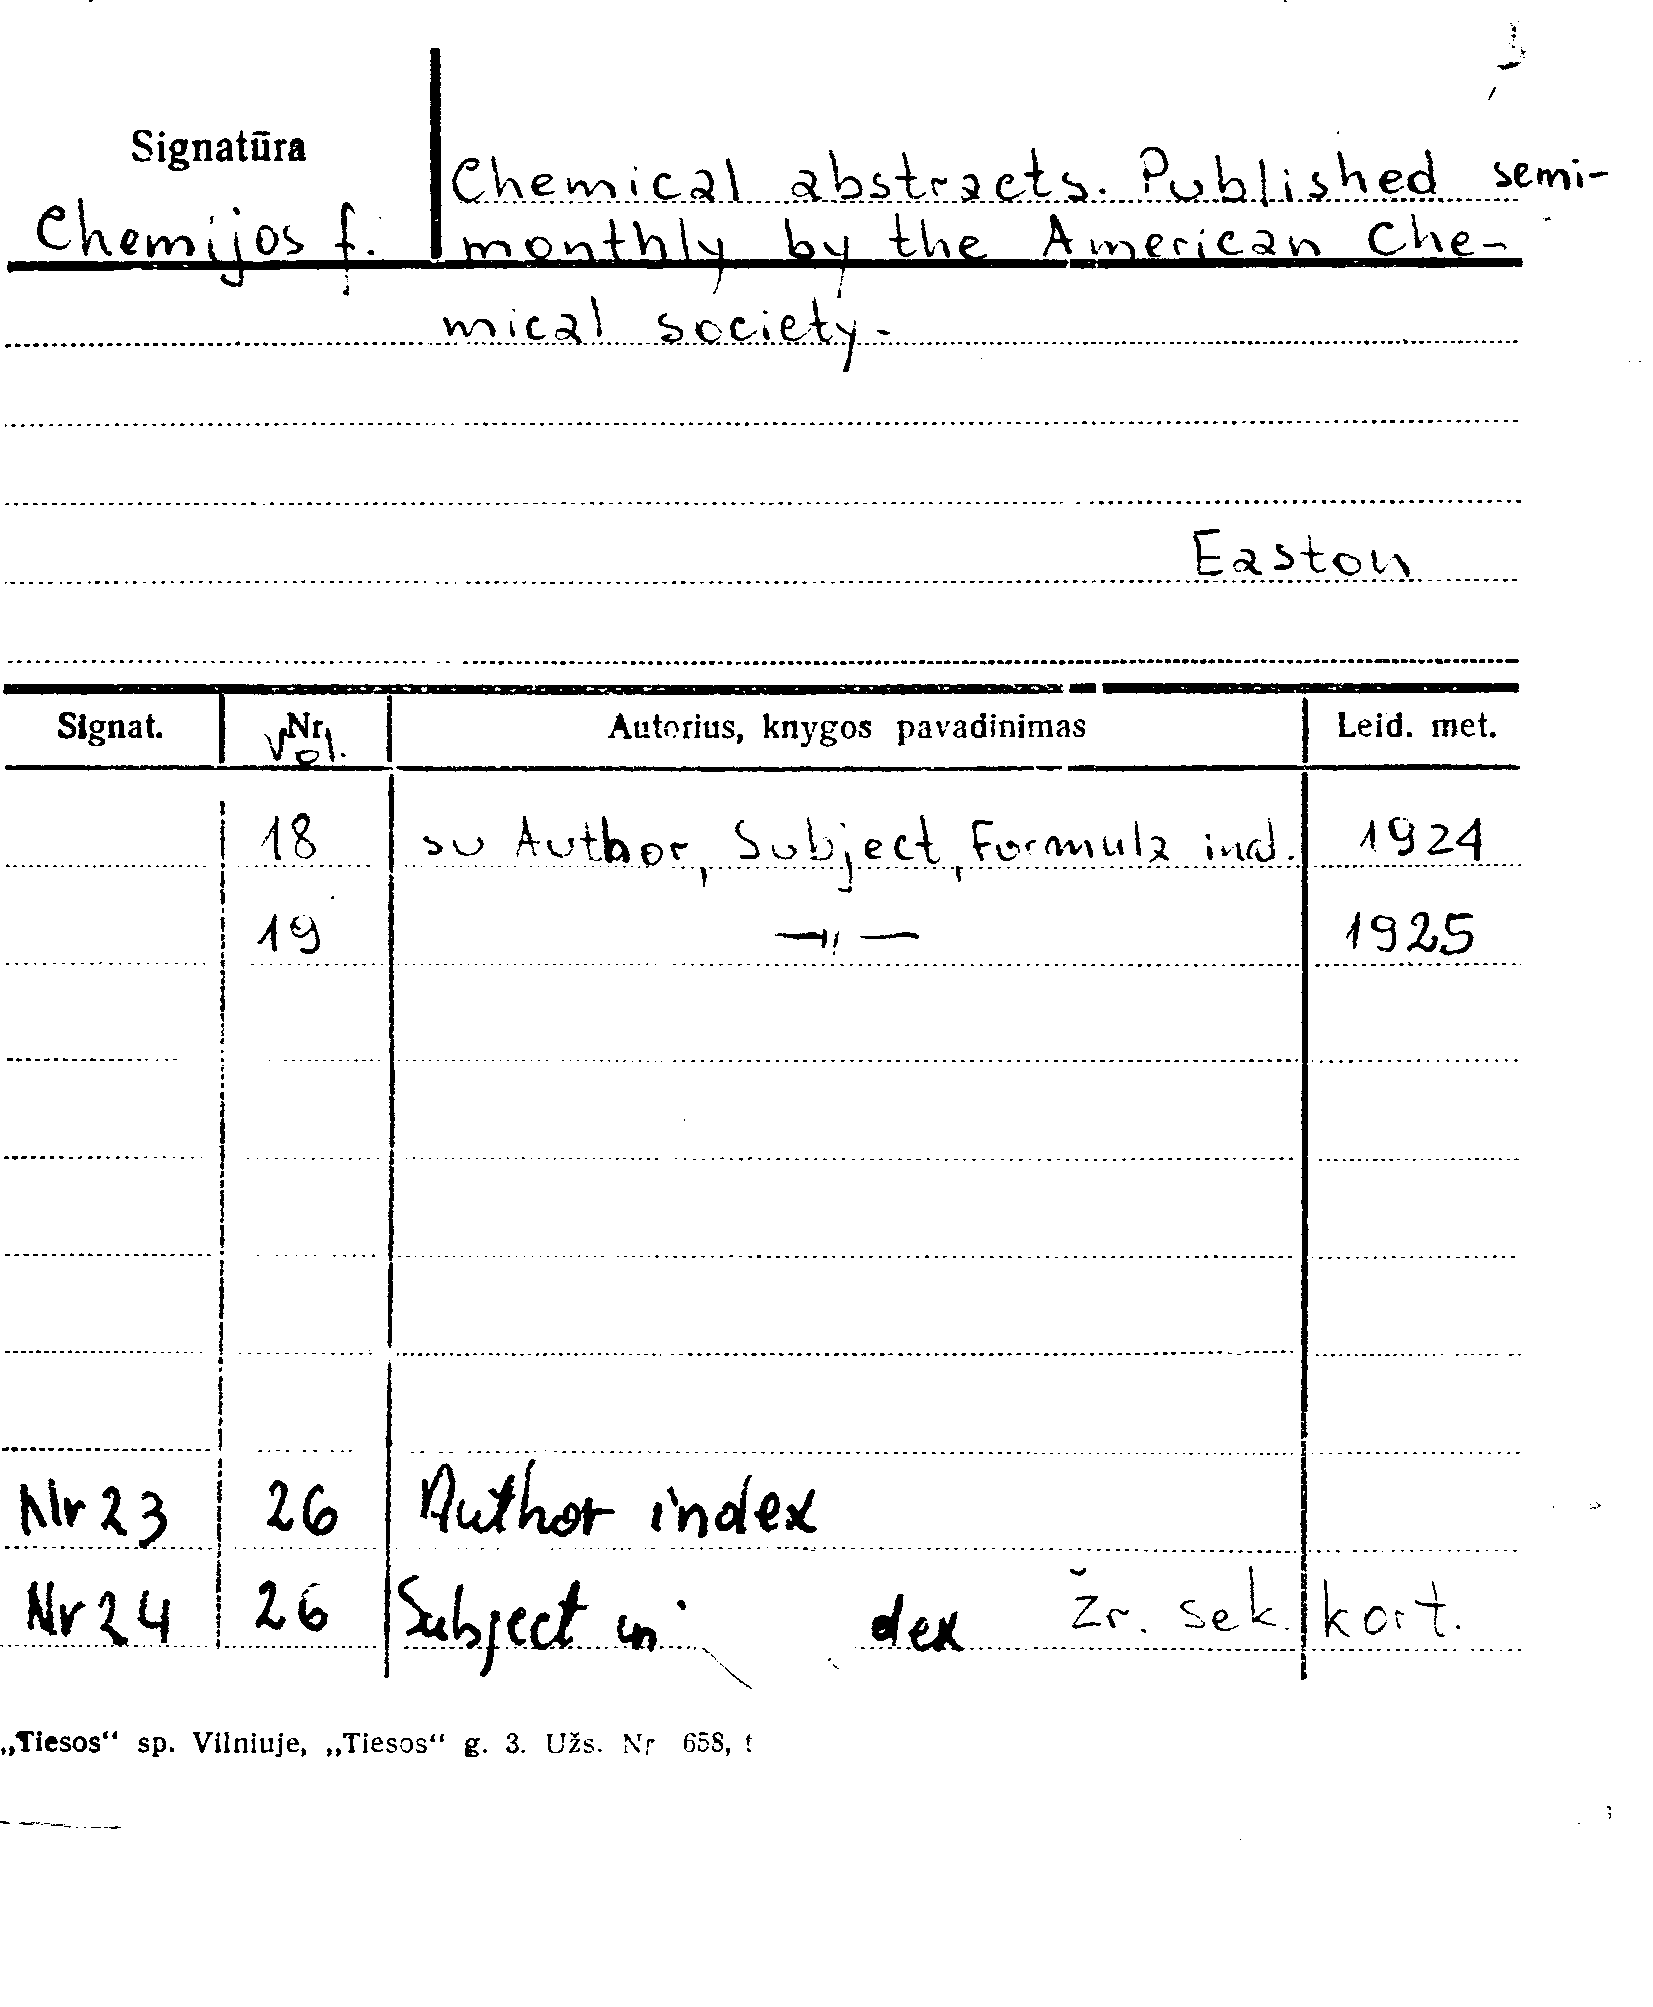 Signatūra
Chemijos f.
Chemical abstracts. Published semi-
monthly by the American Che-
mical society.
Easton
Signat. Nr. Vol. Autorius, knygos pavadinimas Leid. met.
18 su Author, Subject, Formula ind. 1924
19 —〃— 1925
Nr 23 26 Author index
Nr 24 26 Subject in dex žr. sek. kort.
„Tiesos“ sp. Vilniuje, „Tiesos“ g. 3. Užs. Nr 658,